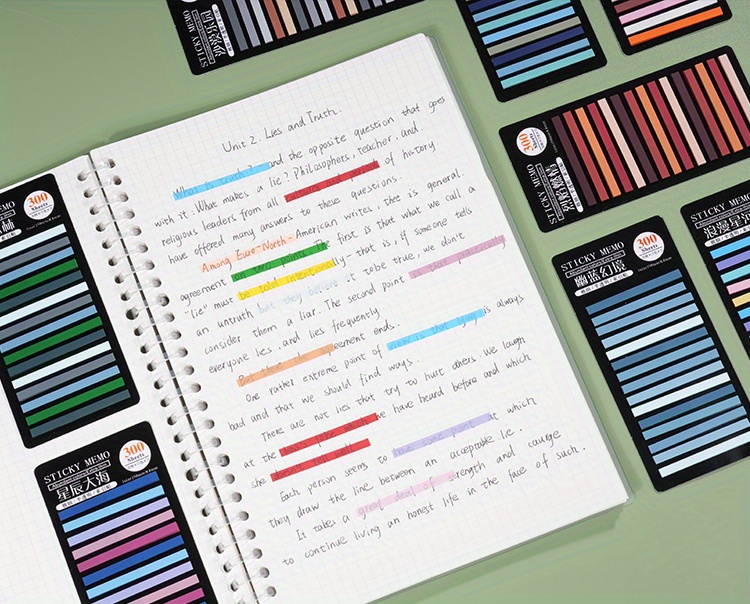 Unit 2. Lies and Truth.
What is truth? and the opposite question that goes
with it: What makes a lie? Philosophers, teacher, and
religious leaders from all of history
have offered many answers to these questions.
Among Euro-North-American writes, thee is general
agreement on two points. The first is that what we call a
"lie" must be told intentionally - that is, if someone tells
an untruth but they believe it to be true, we don't
consider them a liar. The second point is that practically
everyone lies, and lies frequently
But there the agreement ends.
One rather extreme point of view is that is always
bad and that we should find ways.
There are not lies that try to hurt others. We laugh
at the we have heard before and which
she
Each person seems to have some point at which
they draw the line between an acceptable lie.
It takes a great deal of strength and caurge
to continue living an honest life in the face of such.
STICKY MEMO
300
Sheets
STICKY MEMO
星辰大海
300
Sheets
STICKY MEMO
STICKY MEMO
300
Sheets
STICKY MEMO
幽蓝幻境
300
Sheets
STICKY MEMO
浪漫星